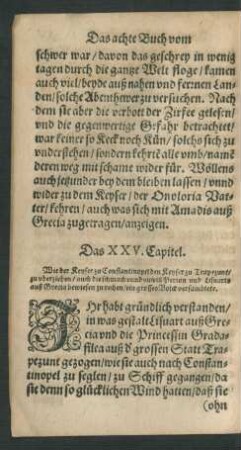 Das achte Buch vom
schwer war / davon das geschrey in wenig
tagen durch die gantze Welt floge / kamen
auch viel / beyde auß nahen vnd ferrnen Lan-
den / solche Abenthewer zu versuchen. Nach
dem sie aber die verbott der Zirfee gelesen /
vnd die gegenwertige Gefahr betrachtet /
war keiner so Keck noch Kün / solchs sich zu
vnderstehen / sondern kehrtẽ alle vmb / namẽ
deren weg mit schame wider für. Wöllens
auch jetzunder bey dem bleiben lassen / vnnd
wider zu dem Keyser / der Onoloria Vat-
ter / kehren / auch was sich mit Amadis auß
Grecia zugetragen / anzeigen.
Das XXV. Capitel.
Wie der Keyser zu Constantinopel den Keyser zu Trapezunt /
zu vberziehen / auch die schmach vnd vnbill Perion vnd Lisuarts
auß Grecia bewiesen zu rechen / ein grosses Volck versamblete.
IHr habt gründlich verstanden /
in was gestalt Lisuart auß Gre-
cia vnd die Princessin Grada-
filea auß d grossen Statt Tra-
pezunt gezogen / wie sie auch nach Constan-
tinopel zu seglen / zu Schiff gegangen / da
sie denn so glücklichen Wind hatten / daß sie
(ohn